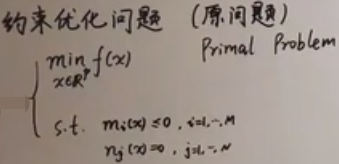 约束优化问题 (原问题)
Primal Problem
min f(x)
x∈ℝᵖ
s.t. mᵢ(x) ≤ 0 , i=1,…,M
nⱼ(x) = 0 , j=1,…,N